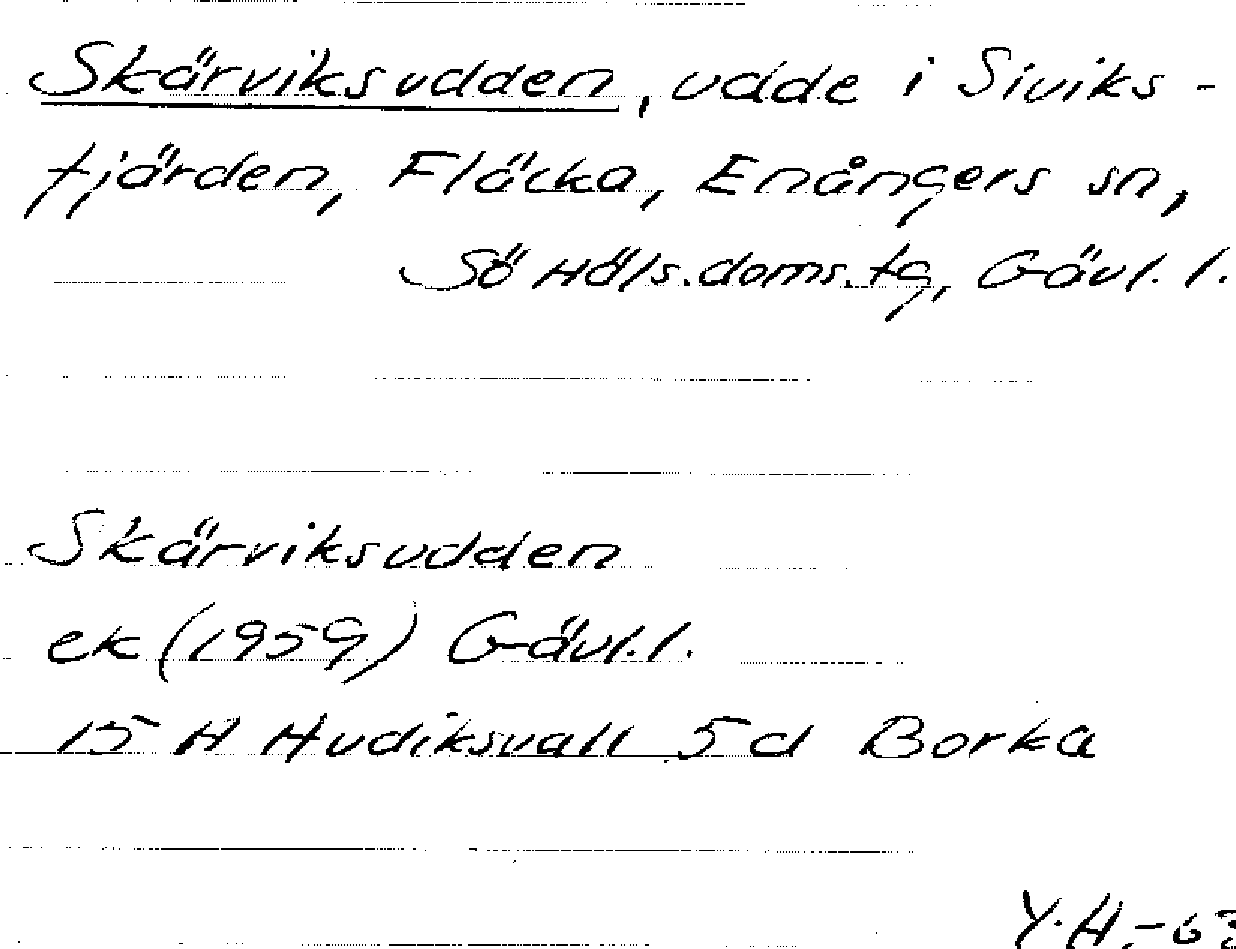 Skärviksudden, udde i Siviks-
fjärden, Fläcka, Enångers sn,
Sö Häls.doms.tg, Gävl. l.
Skärviksudden
ek (1959) Gävl.l.
15 H Hudiksvall 5d Borka
Y.H.-63